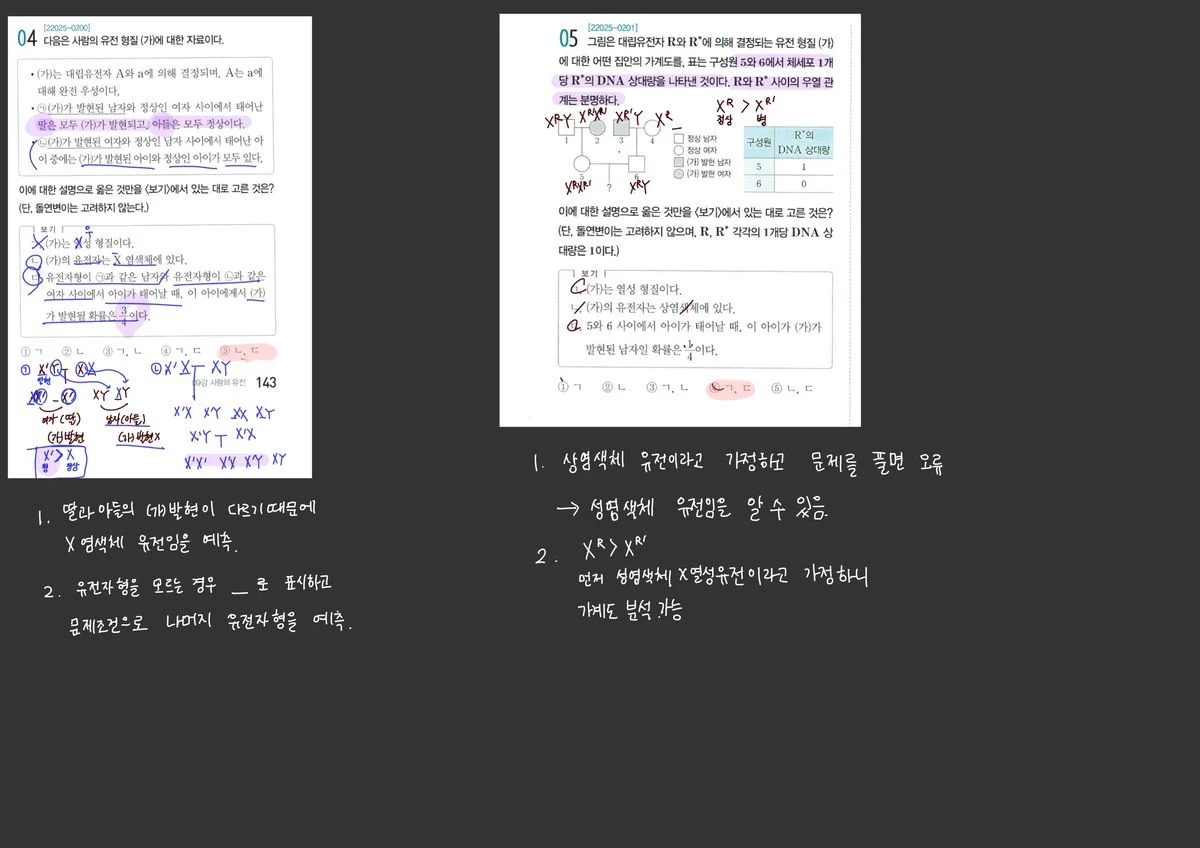 [22025-0200]
04 다음은 사람의 유전 형질 (가)에 대한 자료이다.
• (가)는 대립유전자 A와 a에 의해 결정되며, A는 a에
대해 완전 우성이다.
• ㉠(가)가 발현된 남자와 정상인 여자 사이에서 태어난
딸은 모두 (가)가 발현되고, 아들은 모두 정상이다.
• ㉡(가)가 발현된 여자와 정상인 남자 사이에서 태어난 아
이 중에는 (가)가 발현된 아이와 정상인 아이가 모두 있다.
이에 대한 설명으로 옳은 것만을 〈보기〉에서 있는 대로 고른 것은?
(단, 돌연변이는 고려하지 않는다.)
보기
우
ㄱ. (가)는 열성 형질이다.
ㄴ. (가)의 유전자는 X 염색체에 있다.
ㄷ. 유전자형이 ㉠과 같은 남자와 유전자형이 ㉡과 같은
여자 사이에서 아이가 태어날 때, 이 아이에게서 (가)
가 발현될 확률은 3/4이다.
① ㄱ ② ㄴ ③ ㄱ, ㄴ ④ ㄱ, ㄷ ⑤ ㄴ, ㄷ
㉠ X'Y ㅜ XX
발현
XX' XX' XY XY
여자(딸) 남자(아들)
(가)발현 (가)발현X
X' > X
병 정상
㉡ X'X ㅜ XY
09강 사람의 유전 143
X'X X'Y XX XY
X'Y ㅜ X'X
X'X' X'X X'Y XY
1. 딸과 아들의 (가)발현이 다르기 때문에
X 염색체 유전임을 예측.
2. 유전자형을 모르는 경우 _ 로 표시하고
문제조건으로 나머지 유전자형을 예측.
[22025-0201]
05 그림은 대립유전자 R와 R*에 의해 결정되는 유전 형질 (가)
에 대한 어떤 집안의 가계도를, 표는 구성원 5와 6에서 체세포 1개
당 R*의 DNA 상대량을 나타낸 것이다. R와 R* 사이의 우열 관
계는 분명하다.
X^R > X^R'
정상 병
X^R Y X^R' X^R' X^R' Y X^R _
1 2 3 4
정상 남자
정상 여자
(가) 발현 남자
(가) 발현 여자
구성원 R*의 DNA 상대량
5 1
6 0
5 ? 6
X^R X^R' X^R Y
이에 대한 설명으로 옳은 것만을 〈보기〉에서 있는 대로 고른 것은?
(단, 돌연변이는 고려하지 않으며, R, R* 각각의 1개당 DNA 상
대량은 1이다.)
보기
ㄱ. (가)는 열성 형질이다.
ㄴ. (가)의 유전자는 상염색체에 있다.
ㄷ. 5와 6 사이에서 아이가 태어날 때, 이 아이가 (가)가
발현된 남자일 확률은 1/4이다.
① ㄱ ② ㄴ ③ ㄱ, ㄴ ④ ㄱ, ㄷ ⑤ ㄴ, ㄷ
1. 상염색체 유전이라고 가정하고 문제를 풀면 오류
→ 성염색체 유전임을 알 수 있음.
2. X^R > X^R'
먼저 성염색체 X열성유전이라고 가정하니
가계도 분석 가능